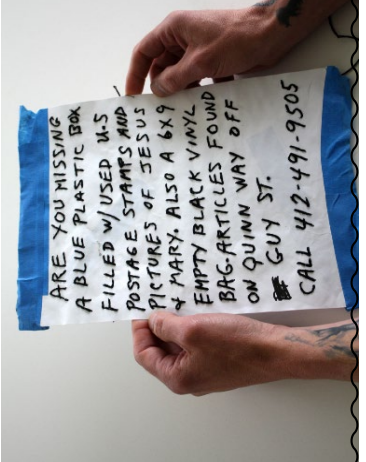 ARE YOU MISSING
A BLUE PLASTIC BOX
FILLED W/ USED U.S
POSTAGE STAMPS AND
PICTURES OF JESUS
& MARY. ALSO A 6X9
EMPTY BLACK VINYL
BAG. ARTICLES FOUND
ON QUINN WAY OFF
GUY ST.
CALL 412-491-9505